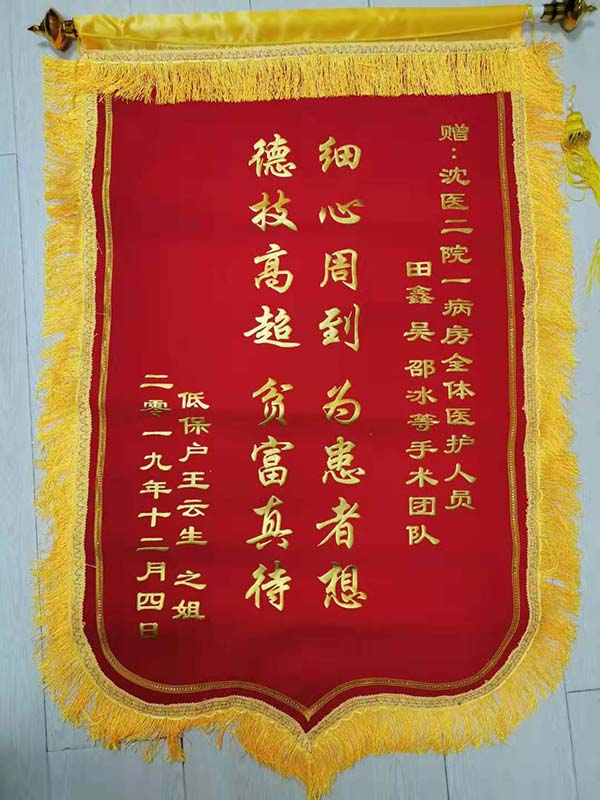 赠：沈医二院一病房全体医护人员
田鑫 吴 邵冰等手术团队
细心周到 为患者想
德技高超 贫富真待
低保户王云生 之姐
二零一九年十二月四日